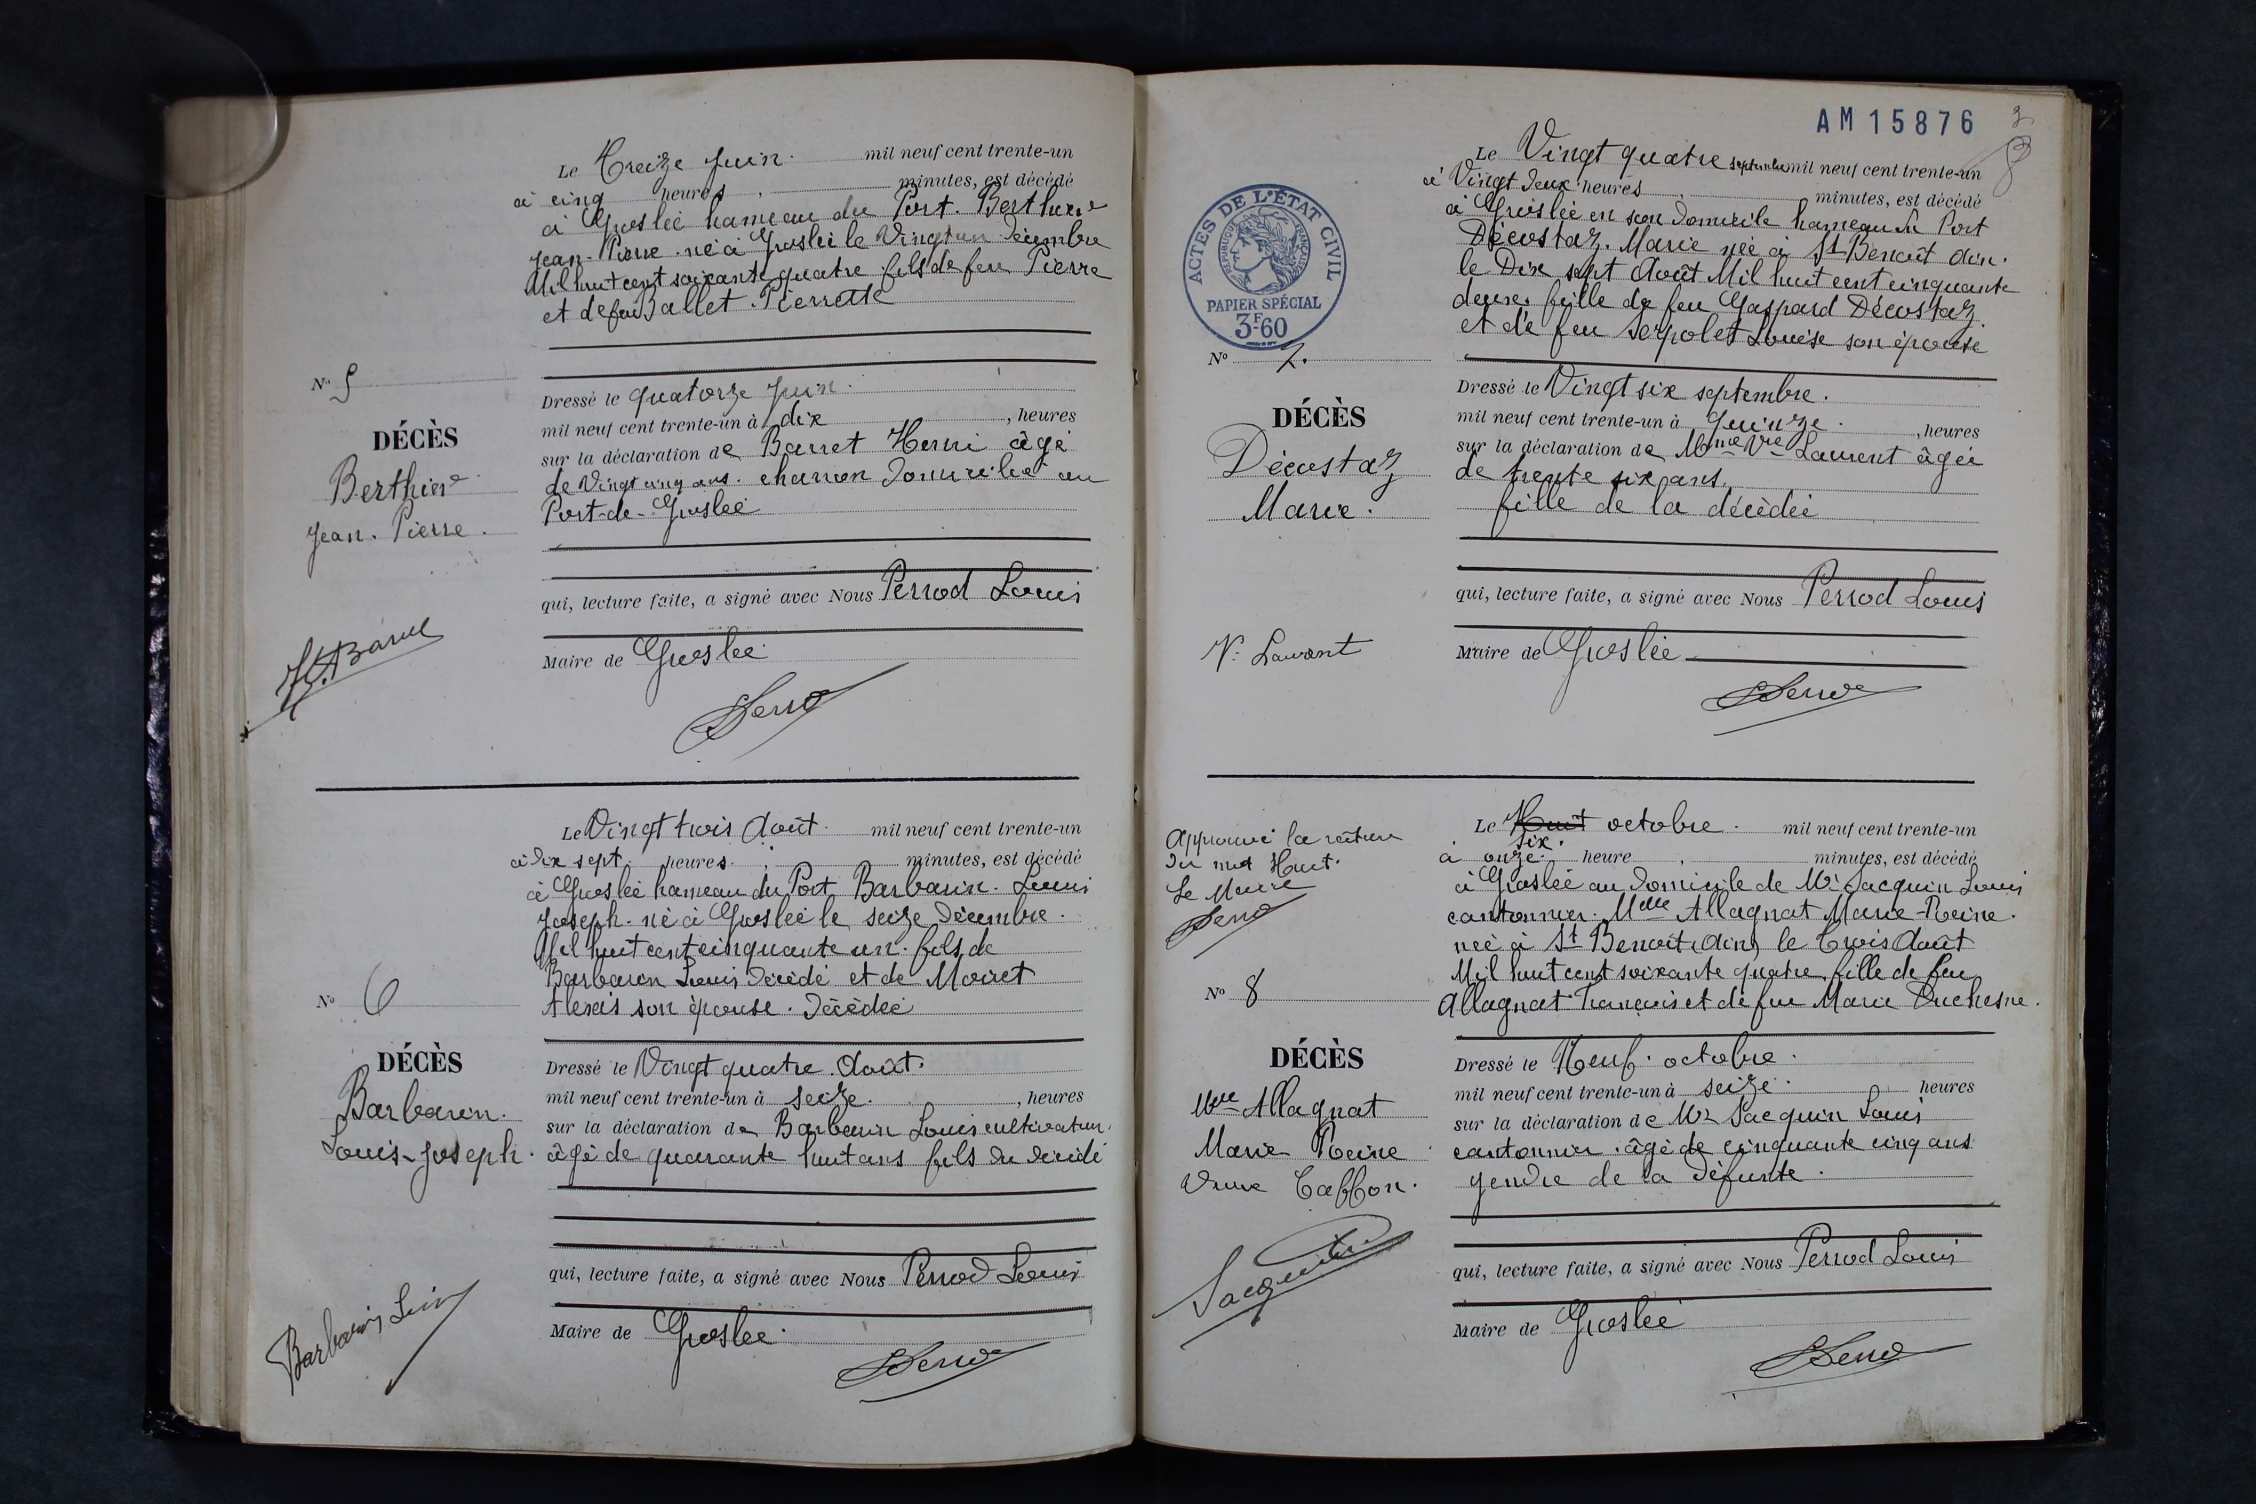 Le Treize Juin. mil neuf cent trente-un
à cinq heures, minutes, est décédé
à Groslée hameau du Port. Berthier
Jean-Pierre né à Groslée le Vingt un décembre
Mil huit cent soixante quatre fils de feu Pierre
et de feu Ballet. Pierrette
N° 5
DÉCÈS
Berthier
Jean. Pierre.
Dressé le quatorze Juin.
mil neuf cent trente-un à dix, heures
sur la déclaration de Barret Henri âgé
de Vingt cinq ans. charron domicilié au
Port-de-Groslée
qui, lecture faite, a signé avec Nous Perrod Louis
Maire de Groslée.
Le Vingt trois Août. mil neuf cent trente-un
à dix sept heures. minutes, est décédé
à Groslée hameau du Port Barbarin. Louis
Joseph. né à Groslée le seize Décembre.
Mil huit cent cinquante un. fils de
Barbarin Louis décédé et de Moiret
Alexis son épouse. décédée
N° 6
DÉCÈS
Barbarin.
Louis-Joseph.
Dressé le Vingt quatre Août.
mil neuf cent trente-un à seize., heures
sur la déclaration de Barbarin Louis cultivateur.
âgé de quarante huit ans fils du décédé
qui, lecture faite, a signé avec Nous Perrod Louis
Barbarin Louis
Maire de Groslée.
AM 15876
3
ACTES DE L'ÉTAT CIVIL
RÉPUBLIQUE FRANÇAISE
PAPIER SPÉCIAL
3F60
Le Vingt quatre septembre mil neuf cent trente-un
à Vingt deux heures, minutes, est décédé
à Groslée en son domicile hameau du Port
Décostaz. Marie née à St Benoît Ain.
le Dix sept Août Mil huit cent cinquante
deux. fille de feu Gaspard Décostaz
et de feu Serpolet Louise son épouse
N° 7.
DÉCÈS
Décostaz
Marie.
Dressé le Vingt six septembre.
mil neuf cent trente-un à Quinze., heures
sur la déclaration de Mme Vve Laurent âgée
de trente six ans.
fille de la décédée
qui, lecture faite, a signé avec Nous Perrod Louis
Vve Laurent
Maire de Groslée
Approuvé la rature
du mot Huit.
Le Maire
Le Huit octobre. mil neuf cent trente-un
six.
à onze. heure, minutes, est décédé
à Groslée au domicile de Mr Jacquin Louis
cantonnier. Melle Allagnat Marie-Reine.
née à St Benoît (Ain) le Trois Août
Mil huit cent soixante quatre. fille de feu
Allagnat François et de feu Marie Duchesne.
N° 8
DÉCÈS
Mme Allagnat
Marie Reine
Veuve Caffon.
Dressé le Neuf. octobre.
mil neuf cent trente-un à seize. heures
sur la déclaration de Mr Jacquin Louis
cantonnier. âgé de cinquante cinq ans
gendre de la défunte.
Jacquin
qui, lecture faite, a signé avec Nous Perrod Louis
Maire de Groslée